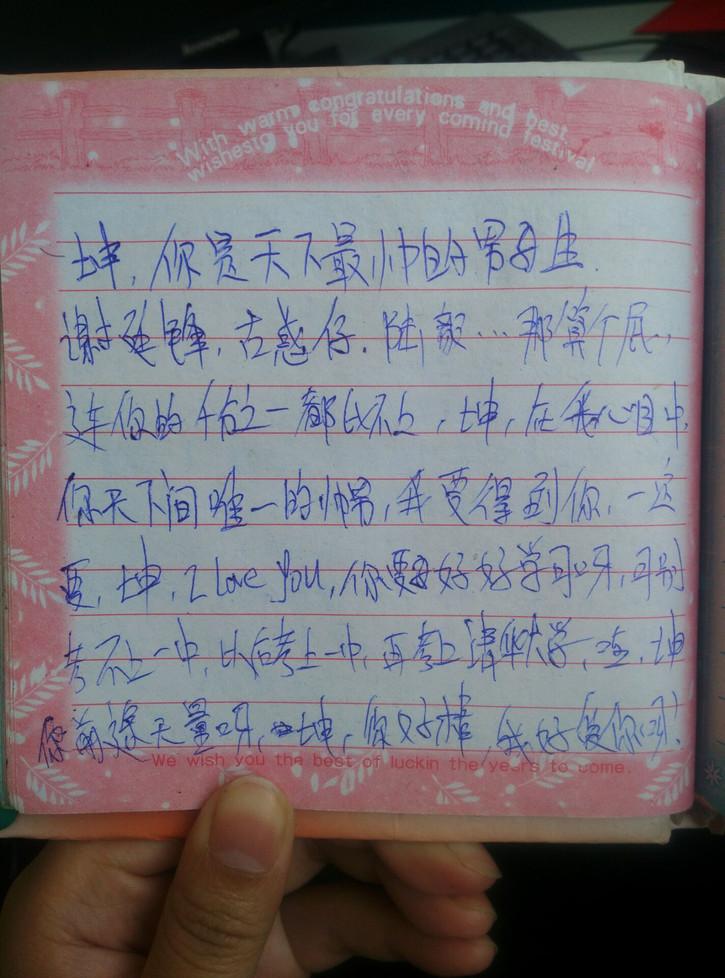 With warm congratulations and best
wishesto you for every comind festival
坤,你是天下最帅的男生.
谢廷锋,古惑仔.陆毅…那算个屁,
连你的千分之一都比不上,坤,在我心目中,
你天下间唯一的帅男,我要得到你,一定
要,坤,I love you,你要好好学习呀,可别
考不上一中,以后考上一中,再考上清华大学,哇,坤
你前途无量呀,坤,你好棒,我好爱你呀.
We wish you the best of luckin the years to come.